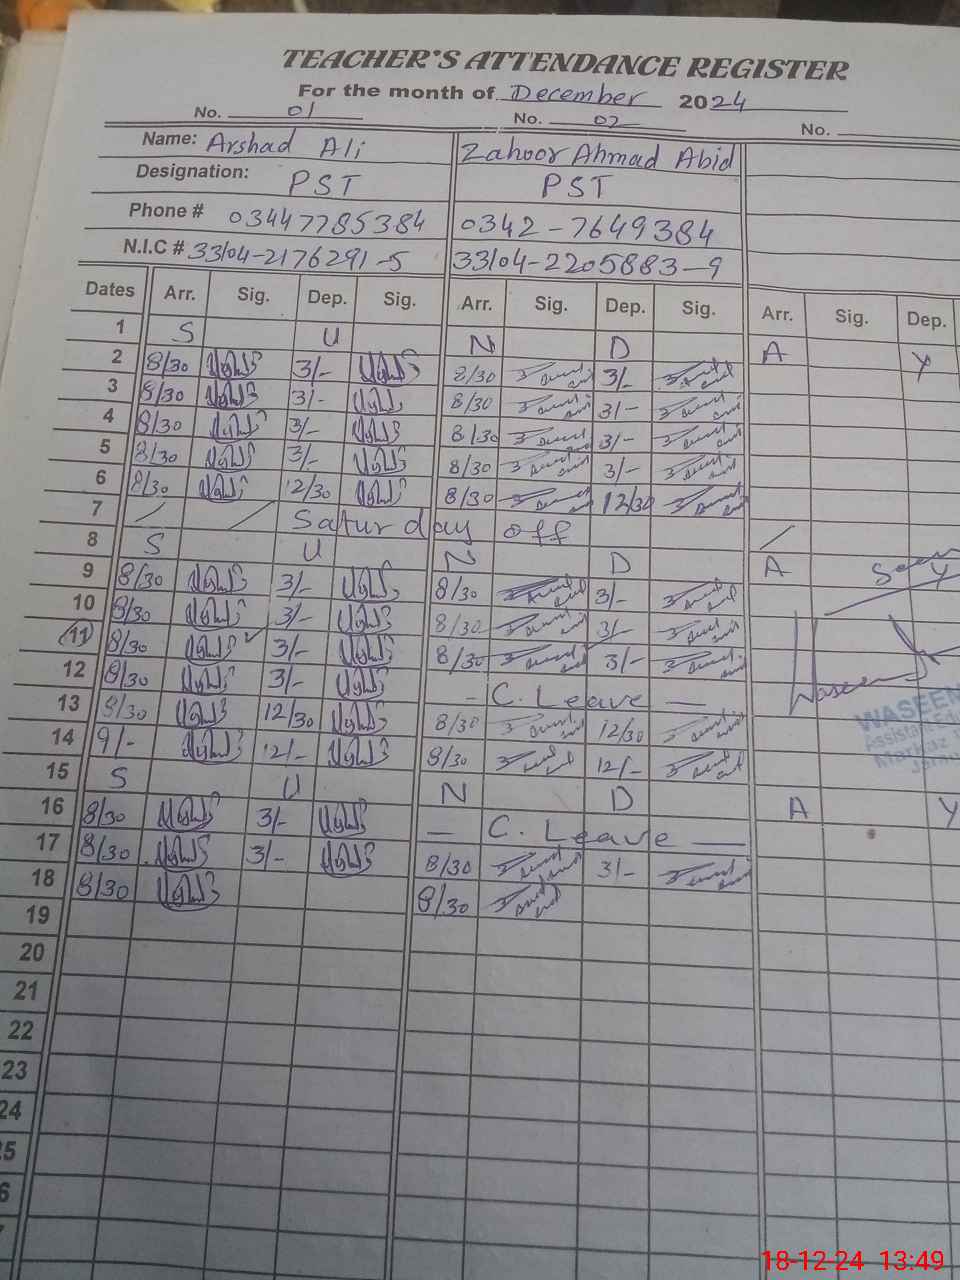 TEACHER'S ATTENDANCE REGISTER
For the month of December 2024
No. 01 No. 02 No.
Name: Arshad Ali Zahoor Ahmad Abid
Designation: PST PST
Phone # 03447785384 0342-7649384
N.I.C # 33104-2176291-5 33104-2205883-9
Dates Arr. Sig. Dep. Sig. Arr. Sig. Dep. Sig. Arr. Sig. Dep.
1 S U N D A Y
2 8/30 3/- 8/30 3/-
3 8/30 3/- 8/30 3/-
4 8/30 3/- 8/30 3/-
5 8/30 3/- 8/30 3/-
6 8/30 12/30 8/30 12/30
7 / / Saturday off /
8 S U N D A Y
9 8/30 3/- 8/30 3/-
10 8/30 3/- 8/30 3/-
11 8/30 3/- 8/30 3/-
12 8/30 3/- - C. Leave -
13 8/30 12/30 8/30 12/30
14 9/- 12/- 8/30 12/-
15 S U N D A Y
16 8/30 3/- - C. Leave -
17 8/30 3/- 8/30 3/-
18 8/30 8/30
19
20
21
22
23
24
25
6
WASEEM
18-12-24 13:49